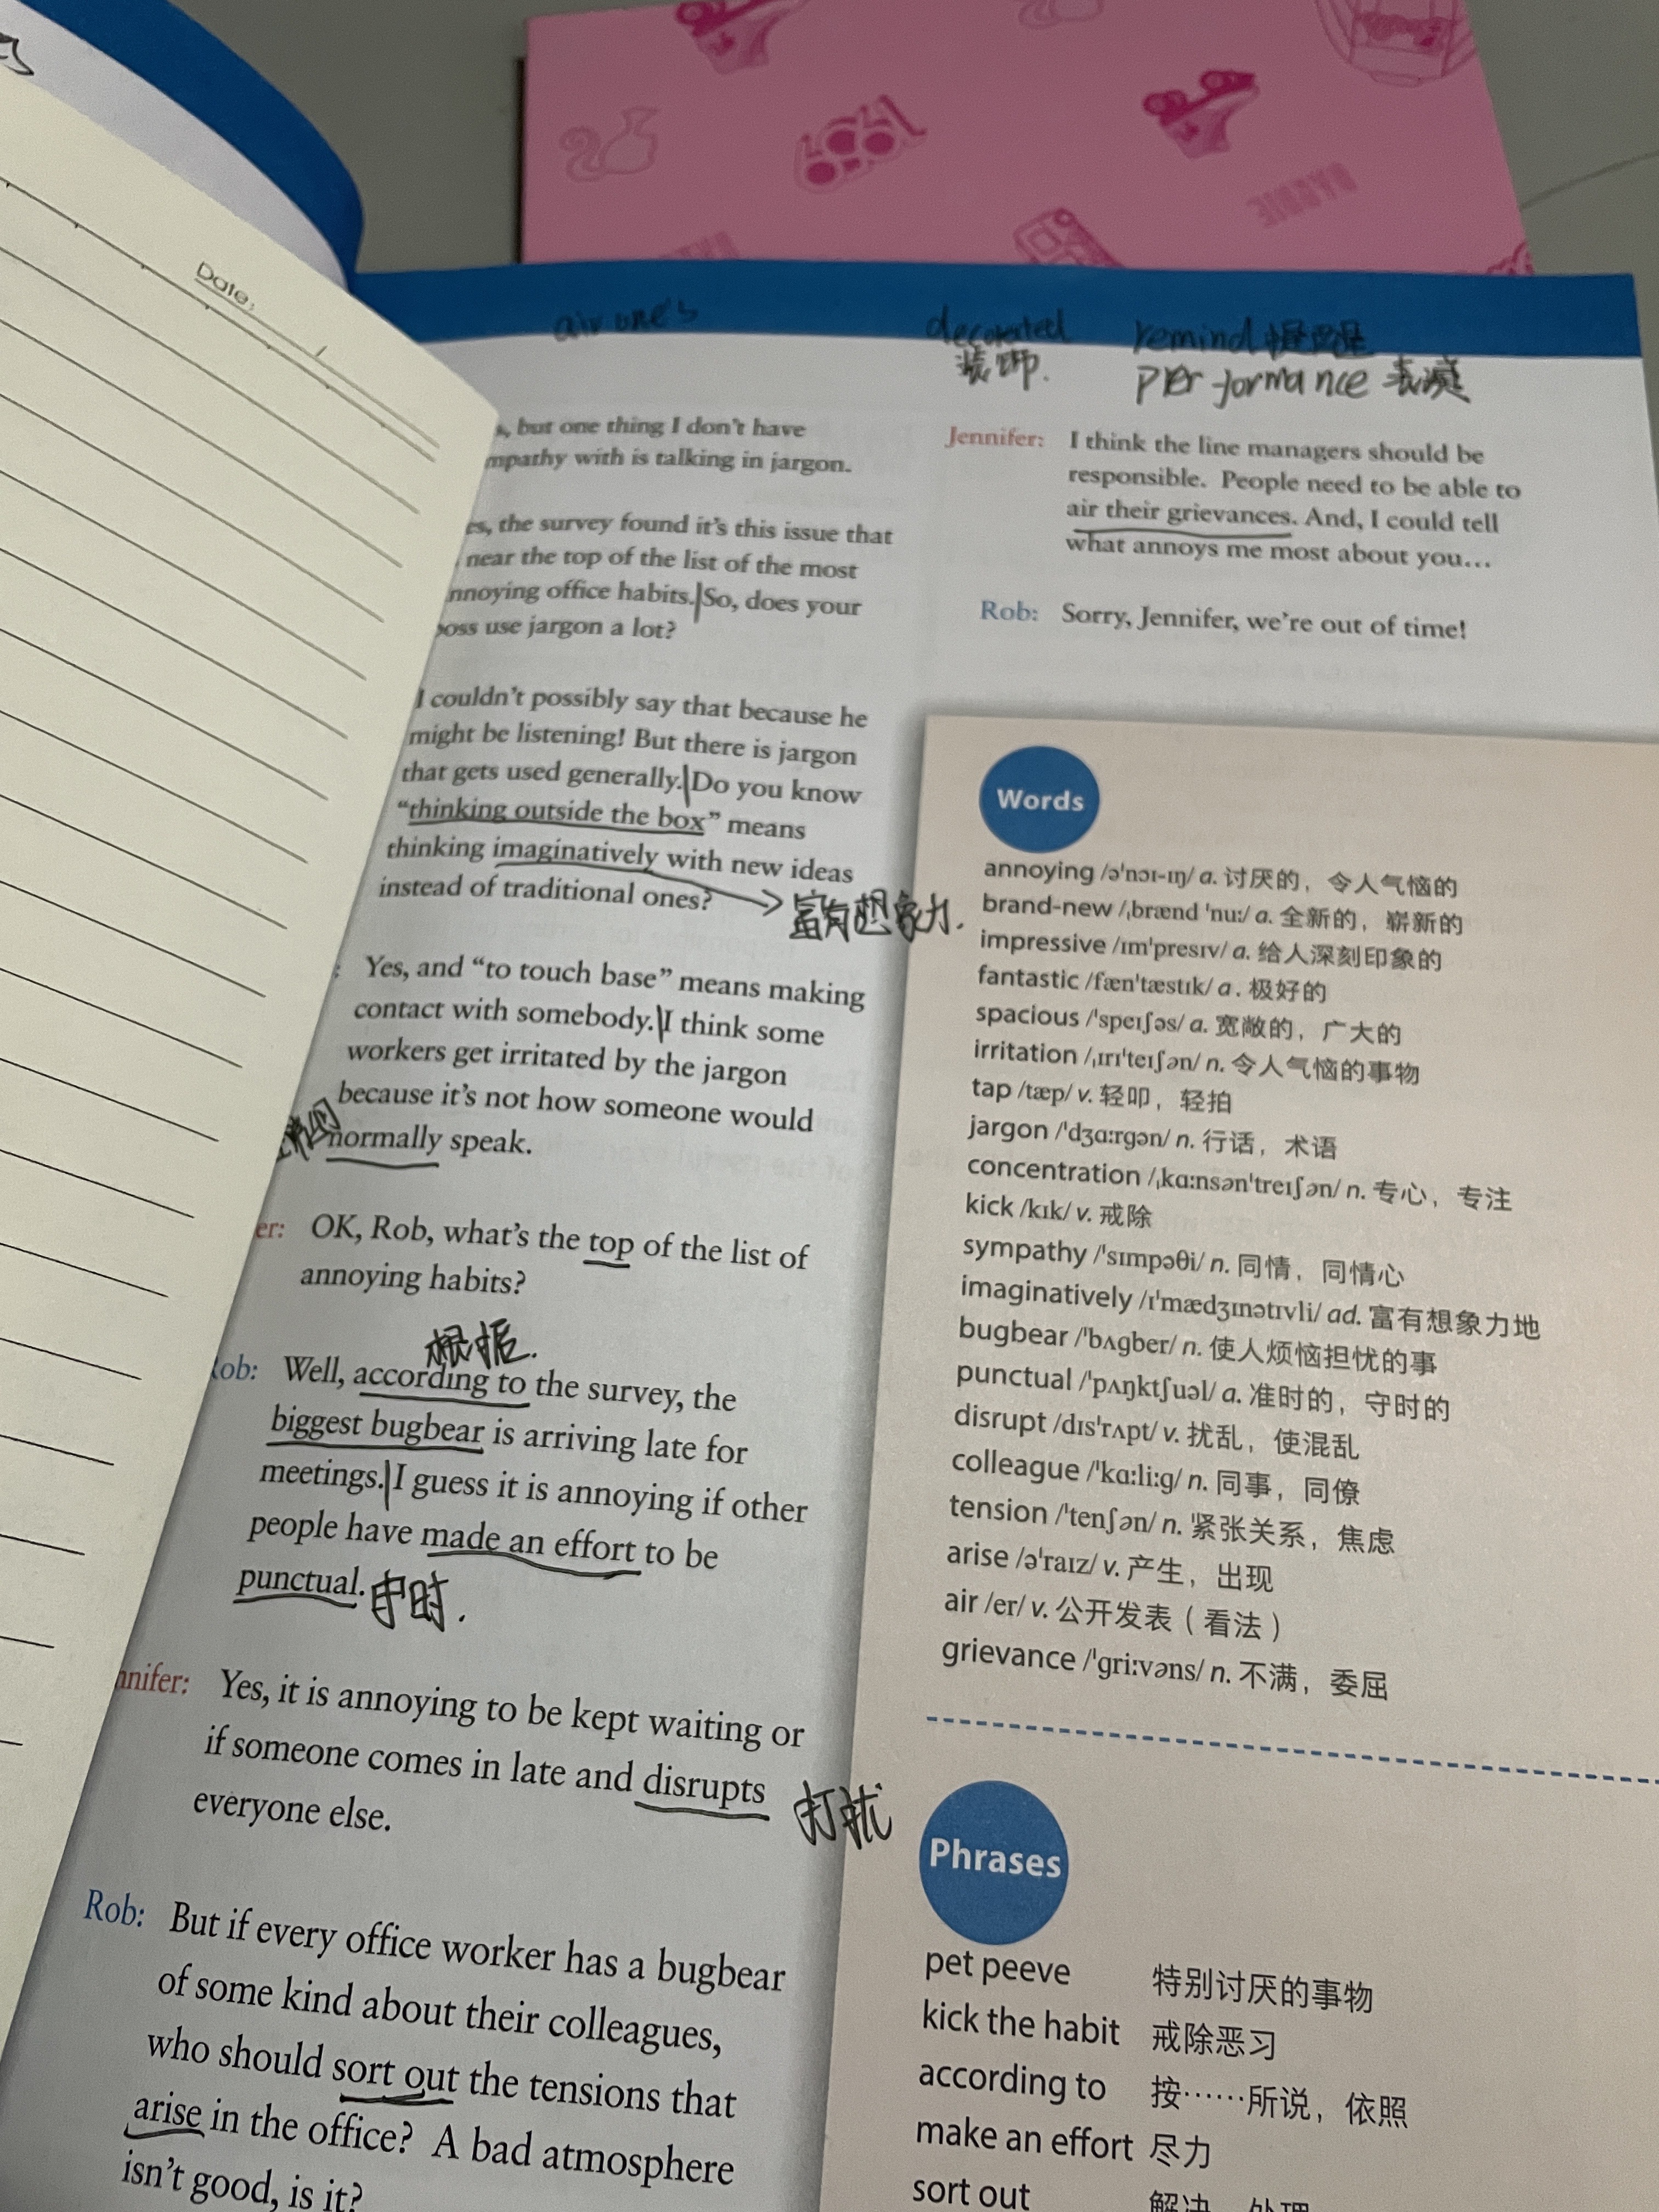 Date:
/
air one's
decorated
装饰.
remind 提醒
performance 表演
, but one thing I don't have
mpathy with is talking in jargon.
es, the survey found it's this issue that
near the top of the list of the most
nnoying office habits. So, does your
boss use jargon a lot?
I couldn't possibly say that because he
might be listening! But there is jargon
that gets used generally. Do you know
“thinking outside the box” means
thinking imaginatively with new ideas
instead of traditional ones?
富有想象力.
: Yes, and “to touch base” means making
contact with somebody. I think some
workers get irritated by the jargon
because it's not how someone would
normally speak.
er: OK, Rob, what's the top of the list of
annoying habits?
根据.
Rob: Well, according to the survey, the
biggest bugbear is arriving late for
meetings. I guess it is annoying if other
people have made an effort to be
punctual. 守时.
nnifer: Yes, it is annoying to be kept waiting or
if someone comes in late and disrupts 打扰
everyone else.
Rob: But if every office worker has a bugbear
of some kind about their colleagues,
who should sort out the tensions that
arise in the office? A bad atmosphere
isn't good, is it?
Jennifer: I think the line managers should be
responsible. People need to be able to
air their grievances. And, I could tell
what annoys me most about you...
Rob: Sorry, Jennifer, we're out of time!
Words
annoying /ə'nɔɪ-ɪŋ/ a. 讨厌的，令人气恼的
brand-new /ˌbrænd 'nuː/ a. 全新的，崭新的
impressive /ɪm'presɪv/ a. 给人深刻印象的
fantastic /fæn'tæstɪk/ a. 极好的
spacious /'speɪʃəs/ a. 宽敞的，广大的
irritation /ˌɪrɪ'teɪʃən/ n. 令人气恼的事物
tap /tæp/ v. 轻叩，轻拍
jargon /'dʒɑːrgən/ n. 行话，术语
concentration /ˌkɑːnsən'treɪʃən/ n. 专心，专注
kick /kɪk/ v. 戒除
sympathy /'sɪmpəθi/ n. 同情，同情心
imaginatively /ɪ'mædʒɪnətɪvli/ ad. 富有想象力地
bugbear /'bʌgber/ n. 使人烦恼担忧的事
punctual /'pʌŋktʃuəl/ a. 准时的，守时的
disrupt /dɪs'rʌpt/ v. 扰乱，使混乱
colleague /'kɑːliːg/ n. 同事，同僚
tension /'tenʃən/ n. 紧张关系，焦虑
arise /ə'raɪz/ v. 产生，出现
air /er/ v. 公开发表（看法）
grievance /'griːvəns/ n. 不满，委屈
Phrases
pet peeve 特别讨厌的事物
kick the habit 戒除恶习
according to 按……所说，依照
make an effort 尽力
sort out 解决，处理